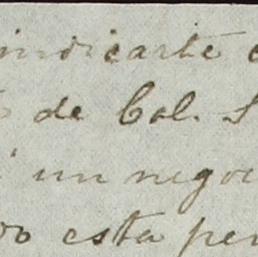 indicarte
de Col. S
un negoc
esta per